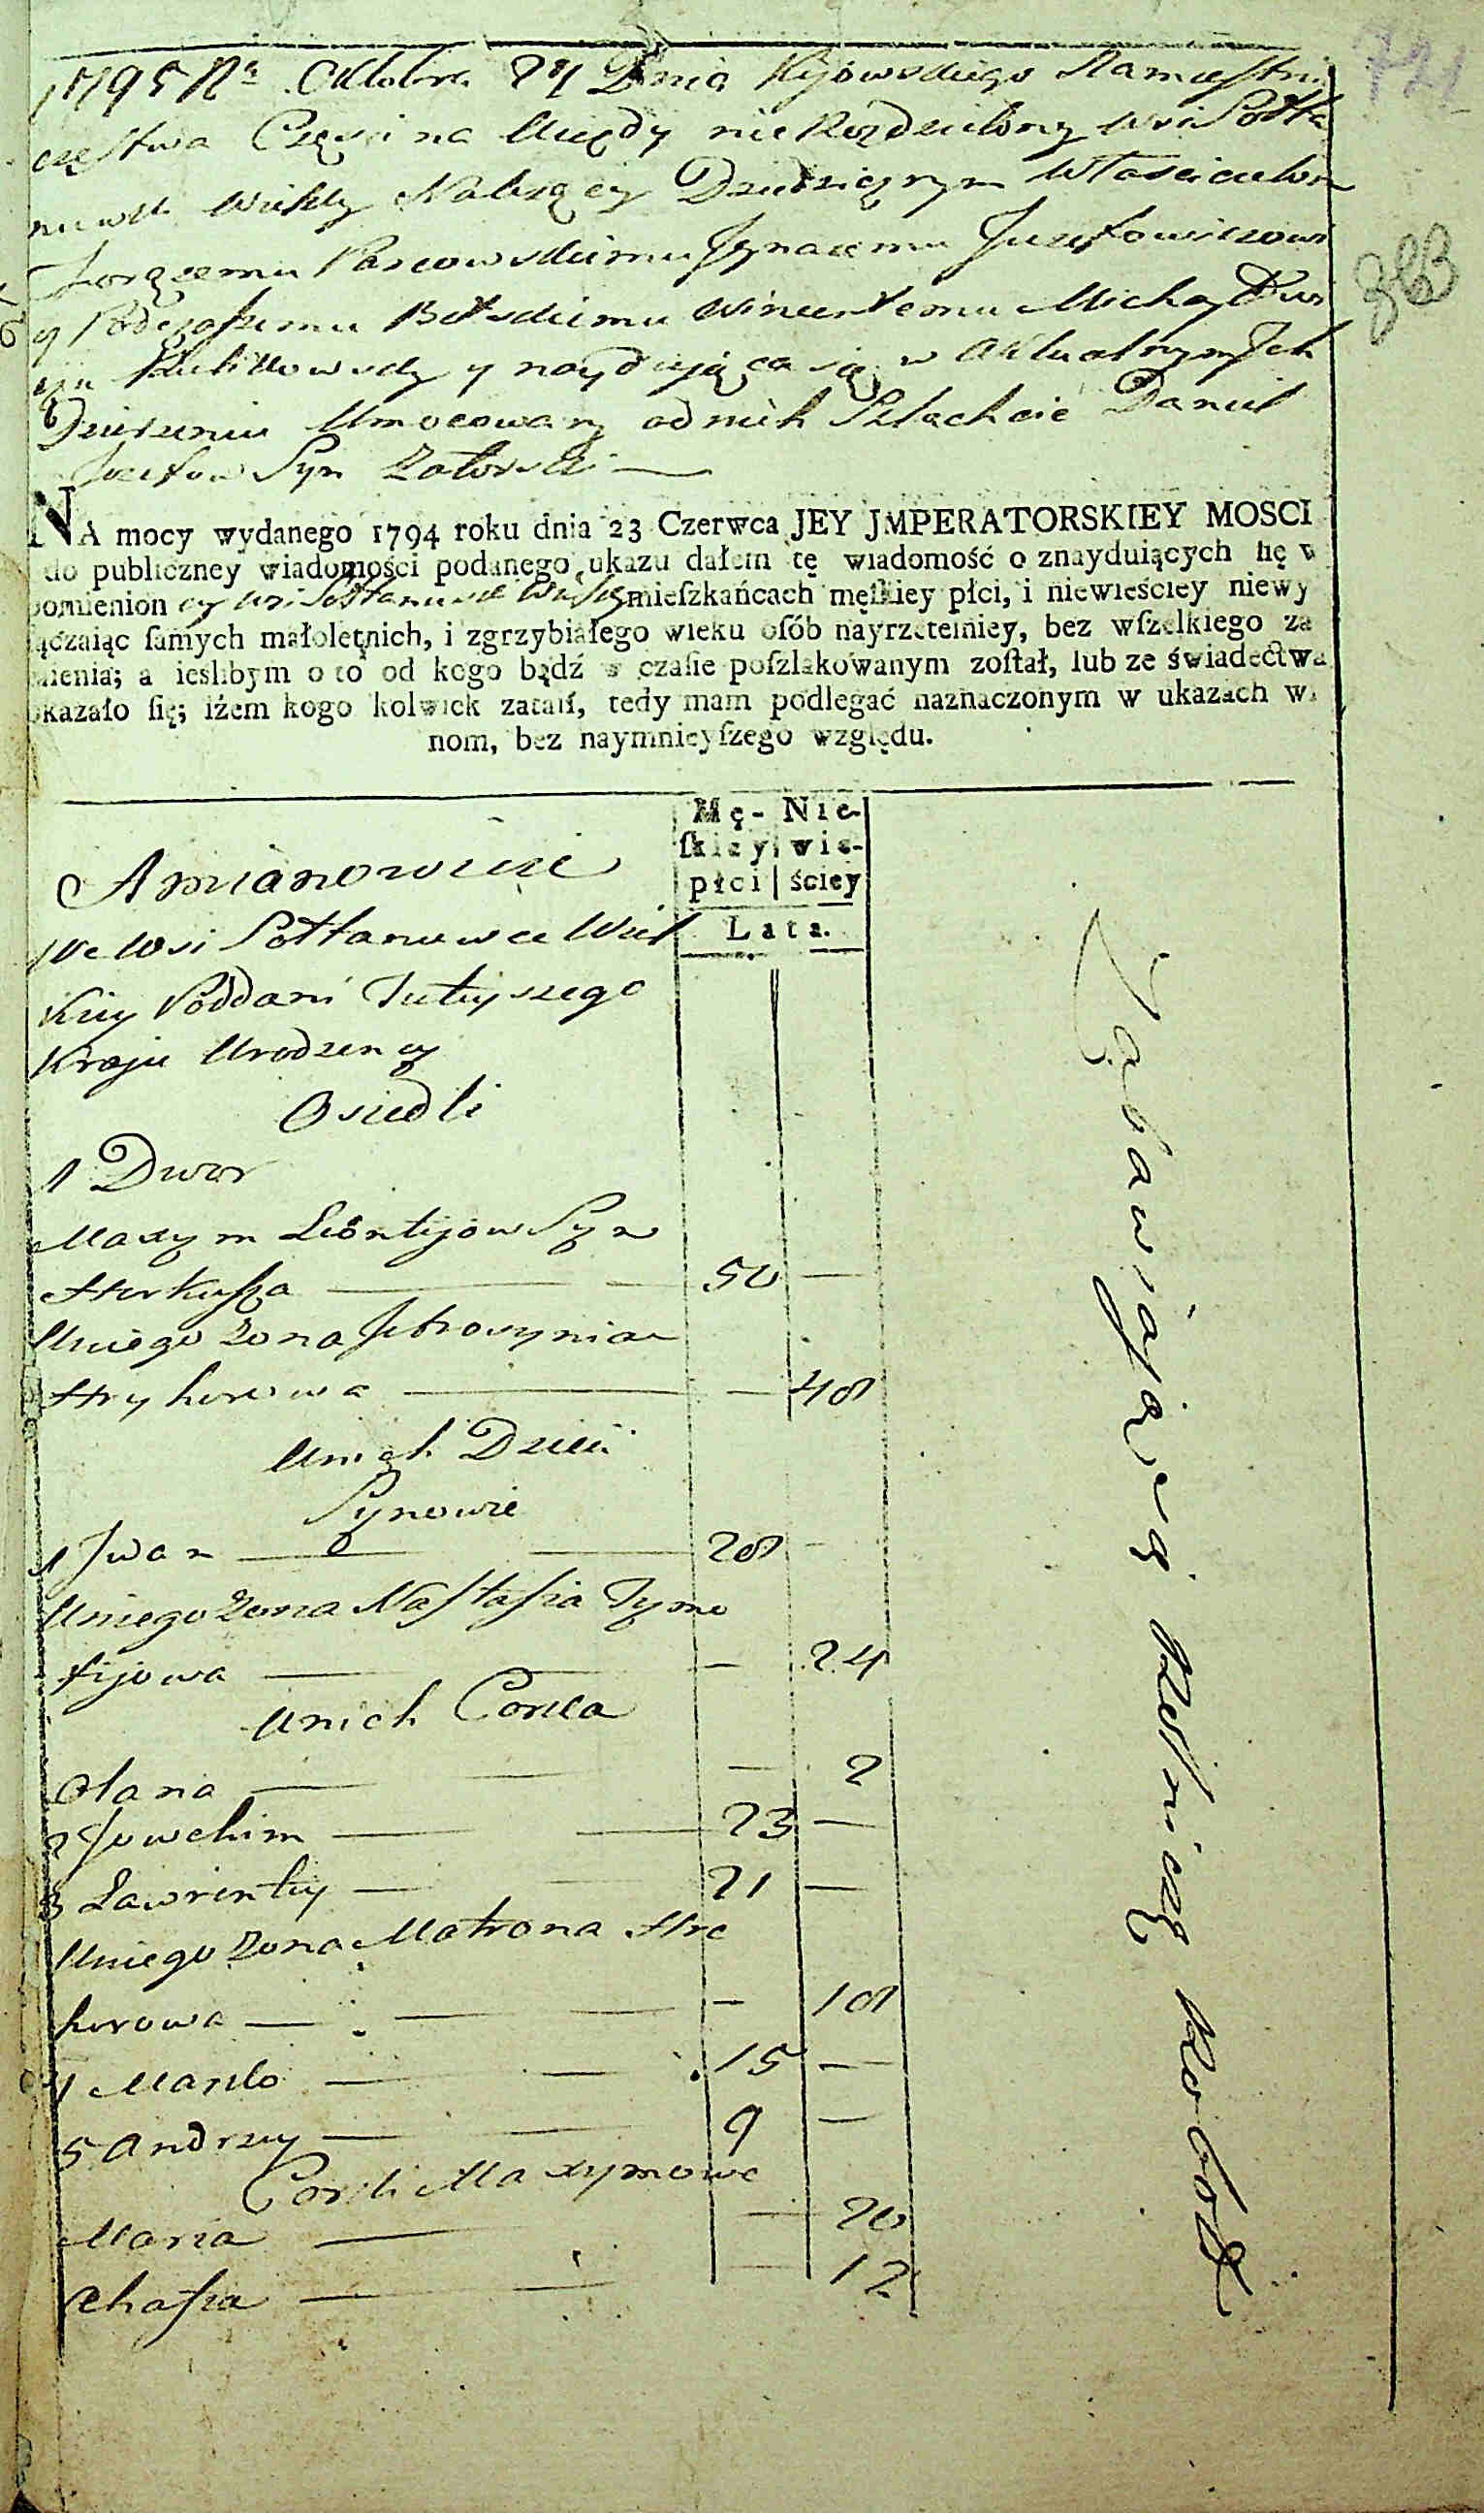 721
1795 Ra Oktobra 24 Dnia Kijowskiego Namiestni
czestwa Części na Między nie Rozdzielony wsi Sołta
nuwki Wielky Należący Dziedzicznym Właścicielom
Chorążemu Juzefowiczowi
y Podczaszemu Wincentemu
y nayduiąca się w Aktualnym Ich
Dzierzeniu Umocowany od nich Szlachcic Daniel
Jozefow Syn Zatorski
NA mocy wydanego 1794 roku dnia 23 Czerwca JEY JMPERATORSKIEY MOSCI
do publiczney wiadomości podanego ukazu dałem tę wiadomość o znayduiących ſię w
pomienion ey wsi Sołtanuwce Wielkiey mieſzkańcach męſkiey płci, i niewieściey niewy
łączaiąc ſamych małoletnich, i zgrzybiałego wieku oſób nayrzetelniey, bez wſzelkiego za
mienia; a ieslibym o to od kogo bądź w czaſie poſzlakowanym zoſtał, lub ze świadectwa
okazało ſię; iżem kogo kolwiek zataił, tedy mam podlegać naznaczonym w ukazach wi
nom, bez naymnieyſzego względu.
Mę- Nie-
ſkiey wie-
płci ściey
Lata.
A mianowicie
We Wsi Sołtanuwce Wiel
Kiey Poddani Tuteyszego
Kraju Urodzency
Osiedli
1 Dwor
Maxym Leontijow Syn
Harkusza — 50 —
Uniego Zona
Hryhorowa — — 48
Unich Dzieci
Synowie
1 Jwan — 28 -
Uniego Zona Nastasia Tymo
fijowa — — 24
Unich Corka
Hana — — 2
2 Jowchim — 23 —
3 Ławrentey — 21 —
Uniego Zona Matrona Hre
horowa — — 18
4 Marko — 15 —
5 Andrzey — 9 —
Corki Maxymowe
Maria — — 20
Chasia — — 12
Zabawiaiący Rolniczą Robotą